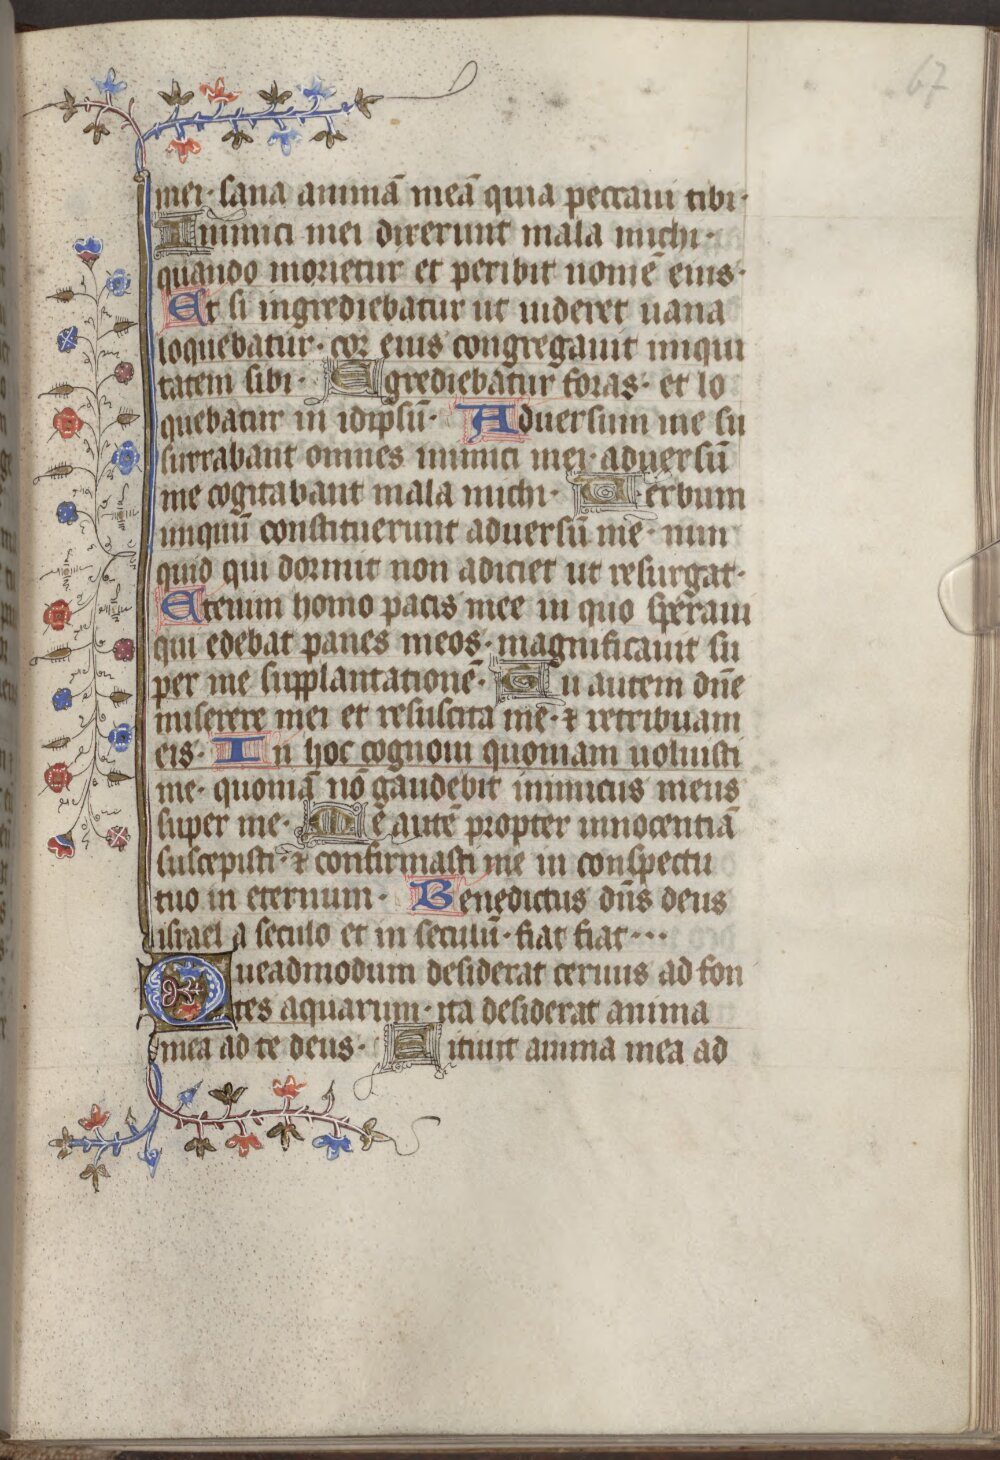 67
mei· sana animā meā quia peccaui tibi·
Inimici mei dixerunt mala michi·
quando morietur et peribit nomē eius·
Et si ingrediebatur ut uideret uana
loquebatur· cor eius congregauit iniqui
tatem sibi· Egrediebatur foras· et lo
quebatur in idipsū· Aduersum me su
surrabant omnes inimici mei· aduersū
me cogitabant mala michi· Verbum
iniquū constituerunt aduersū me· nun
quid qui dormit non adiciet ut resurgat·
Etenim homo pacis mee in quo speraui
qui edebat panes meos· magnificauit su
per me supplantationē· Tu autem dn̄e
miserere mei et resuscita me· ⁊ retribuam
eis· In hoc cognoui quoniam uoluisti
me· quoniā nō gaudebit inimicus meus
super me· Me autē propter innocentiā
suscepisti· ⁊ confirmasti me in conspectu
tuo in eternum· Benedictus dn̄s deus
israel a seculo et in seculū· fiat fiat···
Queadmodum desiderat ceruus ad fon
tes aquarum· ita desiderat anima
mea ad te deus· Sitiuit anima mea ad